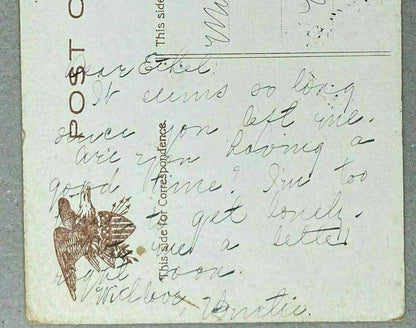 POST C
This side
This side for Correspondence.
Dear Ethel:
It seems so long
since you left me.
Are you having a
good time? I'm too
to get lonely.
me a letter
right soon.
With love, Auntie.